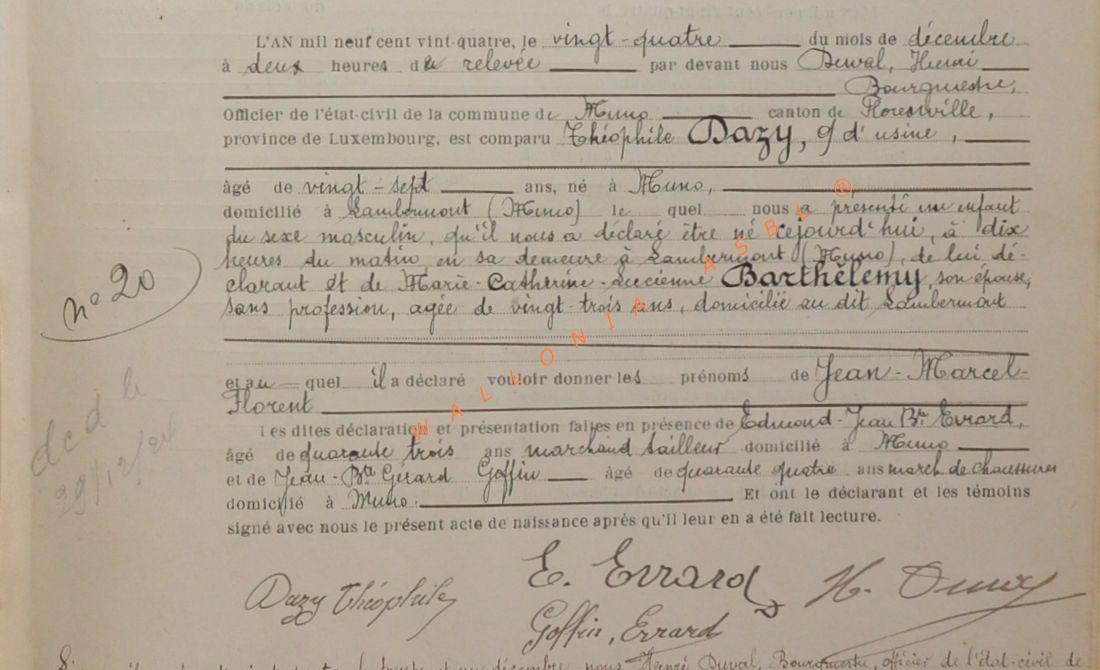 L'AN mil neuf cent vint-quatre, le vingt-quatre du mois de décembre
à deux heures de relevée par devant nous Duval, Henri
Bourgmestre,
Officier de l'état-civil de la commune de Muno canton de Florenville,
province de Luxembourg, est comparu Théophile Dazy, d'usine,
âgé de vingt-sept ans, né à Muno,
domicilié à Lambermont (Muno) le quel nous a présenté un enfant
du sexe masculin, qu'il nous a déclaré être né cejourd'hui, à dix
heures du matin en sa demeure à Lambermont (Muno), de lui dé-
clarant et de Marie-Catherine-Lucienne Barthélemy, son épouse,
sans profession, agée de vingt-trois ans, domicilié au dit Lambermont
n° 20
et au quel il a déclaré vouloir donner les prénoms de Jean-Marcel-
Florent
Les dites déclaration et présentation faites en présence de Edmond-Jean Bte Errard,
âgé de quarante trois ans marchand tailleur domicilié à Muno
et de Jean-Bte Gérard Goffin âgé de quarante quatre ans march. de chaussures
domicilié à Muno. Et ont le déclarant et les témoins
signé avec nous le présent acte de naissance après qu'il leur en a été fait lecture.
dcd le
29/12/24
Dazy Théophile E. Errard H. Duval
Goffin, Errard
décembre, nous Henri Duval, Bourgmestre, officier de l'état-civil de
WALLONIA ASBL ®